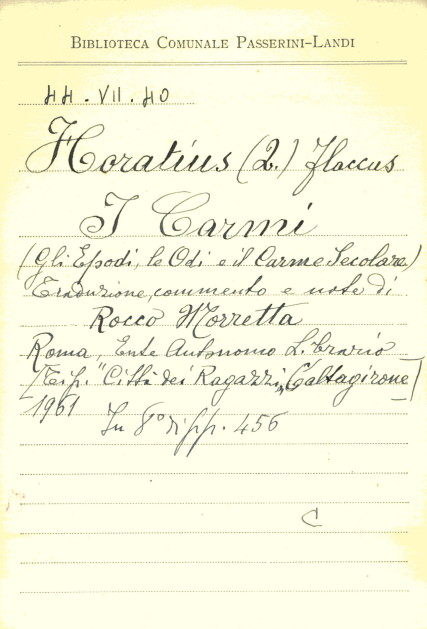 BIBLIOTECA COMUNALE PASSERINI-LANDI
44.VII.40
Horatius (2.) Flaccus
I Carmi
(Gli Epodi, le Odi e il Carme Secolare)
Traduzione, commento e note di
Rocco Morretta
Roma, Ente Autonomo Librario
(Tip. "Città dei Ragazzi", Caltagirone)
1961
In 8° di pp. 456
C